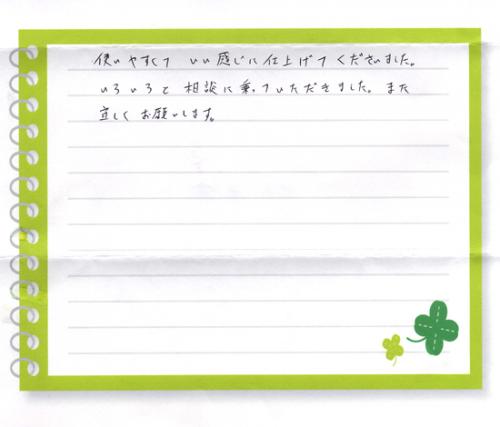 使いやすくて いい感じに仕上げて くださいました。
いろいろと 相談に乗っていただきました。また
宜しく お願いします。